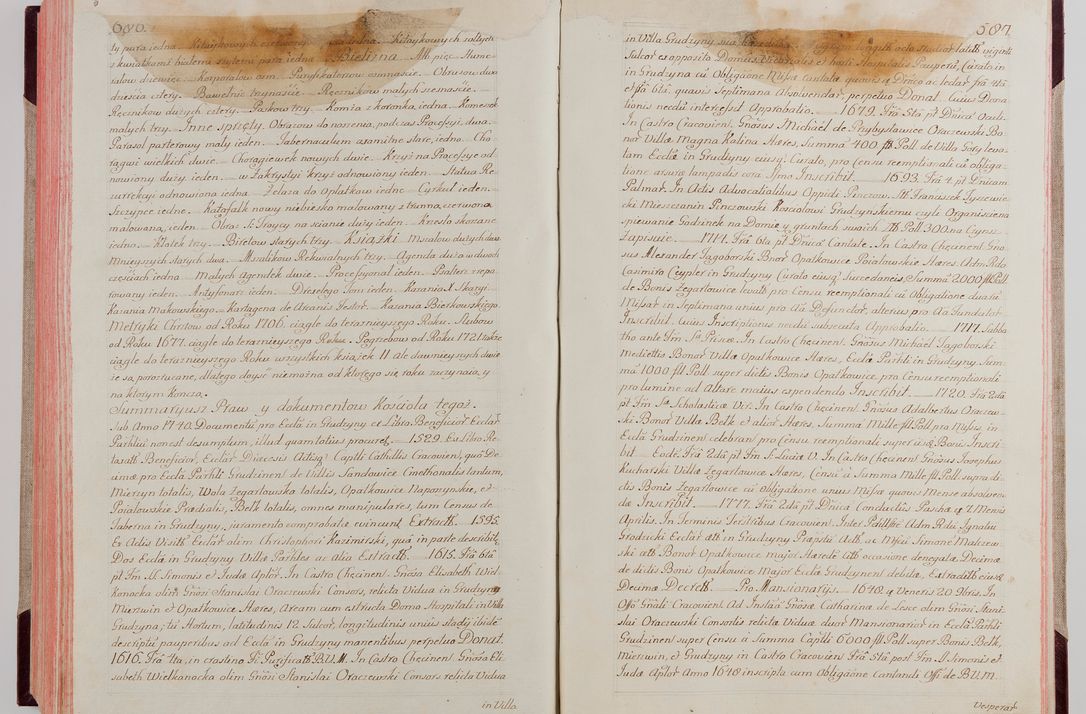 686.
ty para iedna. Kitaykowych czerwonych para iedna. Kitaykowych żołtych
z kwiatkami białemi szytemi para iedna. Bielizna. Alb pięć. Hume-
rałow dziewięć. Korporałow ośm. Puryfikaterzow osmnascie. Obrusow dwa
dzieścia cztery. Bawełnic trzynaście. Ręcznikow małych siesnascie.
Ręcznikow dużych cztery. Paskow trzy. Komża z koronką iedna. Komeżek
małych trzy. Inne sprzęty. Obrazow do noszenia podczas Processyi dwa.
Parasol parterowy mały ieden. Tabernaculum axamitne stare, iedno. Cho
rągwi wielkich dwie. Chorągiewek nowych dwie. Krzyż na Processye od
nowiony duży ieden. w Zakrystyi krzyż odnowiony ieden. Statua Re
surrekcyi odnowiona iedna. Żelaza do Opłatkow iedne. Cyrkuł ieden.
Szczypce iedne. Katafalk nowy niebiesko malowany z trunną czerwoną
malowaną, ieden. Obraz S. Troycy na scianie duży ieden. Krzesło skorzane
iedno. Kłatek trzy. Biretow starych trzy. Książki Mszałow dużych dwa
mnieyszych starych dwa. Mszalikow Rekwialnych trzy. Agenda duża w dwoch
częściach iedna. Małych Agendek dwie. Processyonał ieden. Psałterz repa
rowany ieden. Antyfonarz ieden. Drexelego Tom ieden. Kazania X. Skargi.
Kazania Makowskiego. Kartagena de Arcanis Festor. Kazania Bieżkowskiego.
Metryki Chrztow od Roku 1706. ciągle do teraznieyszego Roku. Slubow
od Roku 1677. ciągle do teraznieyszego Roku. Pogrzebow od Roku 1721 także
ciągle do teraznieyszego Roku wszystkich książek 11 ale dawnieyszych dwie
że są porozrucane, dlatego doyść niemożna od ktorego się roku zaczynaią, y
na ktorym kończą.
Summaryusz Praw y dokumentow Kościoła tego.
Sub Anno 1740. Documentū pro Ecclā in Grudzyny ex Libro Beneficior Ecclar
Parhlii nonest desumptum, illud quam totius procuret. 1529. Ex Libro Re-
taxatt Beneficior, Ecclar Diœcesis Attisq Capitt Cathdlis Cracovien, quō De-
umæ pro Ecclā Parhli Grudzinen de Villis Sandowice Cmethonales tantum,
Mierzyn totalis, Wola Zegartowska totalis, Opatkowice Naporzynskie, et
Poiałowskie Prædialis, Belk totalis, omnes manipulares, tum Census de
Taberna in Grudzyny, juramento comprobatæ evincunt Extractt. 1595.
Ex Actis Visitt Ecclar olim Christophori Kazimirski, quā in parte describit
Dos Ecclā in Grudzyny Villā Parlius ac alia Extractt. 1615. Frā 6tā
pt Fm SS. Simonis et Judā Aplor. In Castro Chęcinen. Gnōsa Elisabeth Wiel
konocka olim Gnōsi Stanislai Oraczewski Consors, relicta Vidua in Grudzyny
Mierzwin et Opatkowice Hæres, Aream cum extructa Domo Hospitali in Villa
Grudzyna; tū Hortum, latitudinis 12. Sulcor, longitudinis unius stady ibidē
descriptū pauperibus ad Ecclā in Grudzyny manentibus perpetuo Donat.
1616. Frā 4ta, in crastino Fi. Purificatt B.V.M. In Castro Chęcinen. Gnōsa Eli
sabeth Wielkanocka olim Gnōsi Stanislai Oraczewski Consors relicta Vidua
in Villa
687.
in Villa Grudzyny sua viginti
Sulcor ex opposito Domus et horti Hospitalis Pauperū, Curato in
in Grudzyna cū Obligaōne Missæ cantatæ quavis Dnicā ac lectar frā 4tā
et frā 6tā quavis Septimana Absolvendar, perpetuo Donat. Cuius Dona
tionis nec dū interesset Approbatio. 1679. Frā 5ta pt Dnicā Oculi.
In Castro Cracovien. Gnōsus Michael de Przybysławice Oraczewski Bo
nor Villā Magna Kalina Hæres, Summā 400. fl Poll. de Villis Gory leva
tam Ecclā in Grudzyny eiusq Curato, pro Censu reemptionali cū obliga
tione arsuræ lampadis cora Ssmo Inscribit. 1693. Frā 4. pt Dnicam
Palmar. In Actis Advocatialibus Oppidi Pinczow. Ftt Franciscek Tyszewic
cki Mieszczanin Pinczowski Kosciołowi Grudzynskiemu czyli Organiscie na
spiewanie Godzinek na Domie y gruntach swoich Ztt Poll 300. na Czynsz
Zapisuie. 1714. Frā 6ta pt Dnicā Cantate. In Castro Chęcinen Gno
sus Alexander Jagoborski Bnor Opatkowice Poiałowskie Hæres Adm Rdo
Casimiro Ceypler in Grudzyny Curato eiusq Succedaneis, Summā 2000 fl Poll
de Bonis Zegartowice levatā pro Censu reemptionali cū Obligatione duarū
Missar in Septimana unius pro Aā Defunctor, alterius pro Aā Fundator
Inscribit. Cuius Inscriptionis nec dū subsecuta Approbatio. 1717. Sabba
tho ante Fm Sta Priscæ. In Castro Chęcinen. Gnōsus Michael Jagoborski
Medietatis Bonor Villā Opatkowice Hæres, Ecclā Parhli in Grudzyny Sum
mā 1000 fl. Poll. super dictis Bonis Opatkowice, pro Censu reemptionali
pro lumine ad Altare maius expendendo Inscribit. 1720. Frā 2dā
pt Fm Sta Scholasticæ Vcr. In Castro Chęcinen. Gnōsus Adalbertus Oraczew
ski Bonor Villā Belk et alior Hæres, Summā Mille fl Poll pro Missis, in
Ecclā Grudzinen celebran pro Censu reemptionali super iisdē Bonis Inscri
bit. Eodē Frā 2dā pt Fm S. Luciæ V. In Castro Chęcinen Gnōsus Josephus
Kucharski Villā Zegartowice Hæres, Censū ā Summa Mille fl Poll supra di
ctis Bonis Zegartowice cū Obligatione unius Missæ quovis Mense absolven
da Inscribit. 1777. Frā 2dā pt Dnicā Conductus Pascha q 7. Mensis
Aprilis. In Terminis Terttribus Cracovien. Inter Perillrē Adm Rdū Ignatiū
Grodzicki Ecclar att in Grudzyny Præpstū Acttr. ac Mfcū Simonē Malczew
ski att Bonor Opatkowice major. Hæredē Citt occasione denegatæ Decimæ
de dictis Bonis Opatkowice Major Ecclā Grudzynen debita, Extraditt eiusdē
Decimā Decrett. Pro Mansionarijs. 1640. q Veneris 20 Xbris. In
Offō Gnāli Cracovien. Ad Instā Gnōsa Catharina de Lesce olim Gnōsi Stani-
slai Oraczewski Consortis relictā Viduā duar Mansionarior in Ecclā Parhli
Grudzinen super Censu ā Summa Captli 6000 fl. Poll super Bonis Belk,
Mierzwin, et Grudzyny in Castro Cracovien Frā 5tā post Fm SS. Simonis et
Judā Aplor Anno 1640 inscripta cum Obligaōne Cantandi Offi de B.V.M.
Vesperar